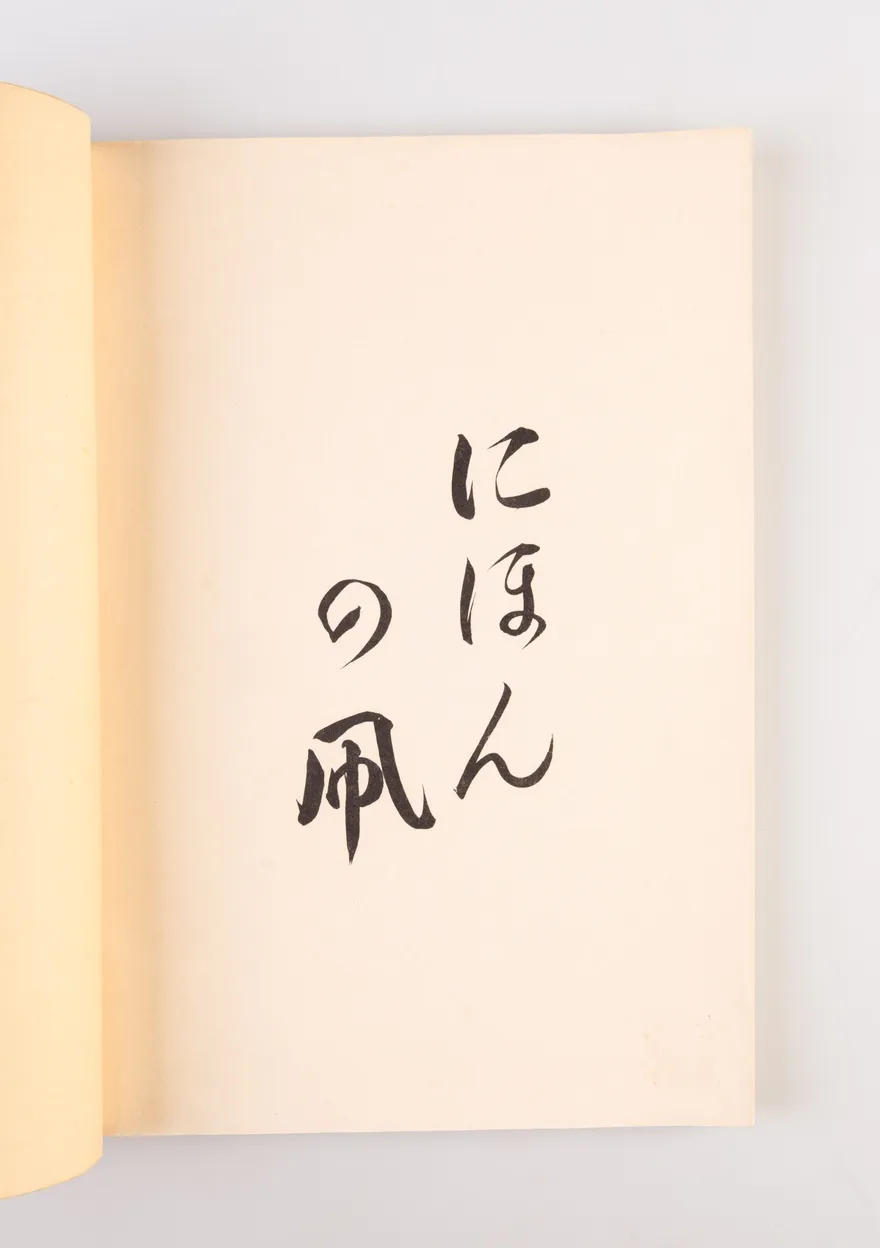 にほん
の凧